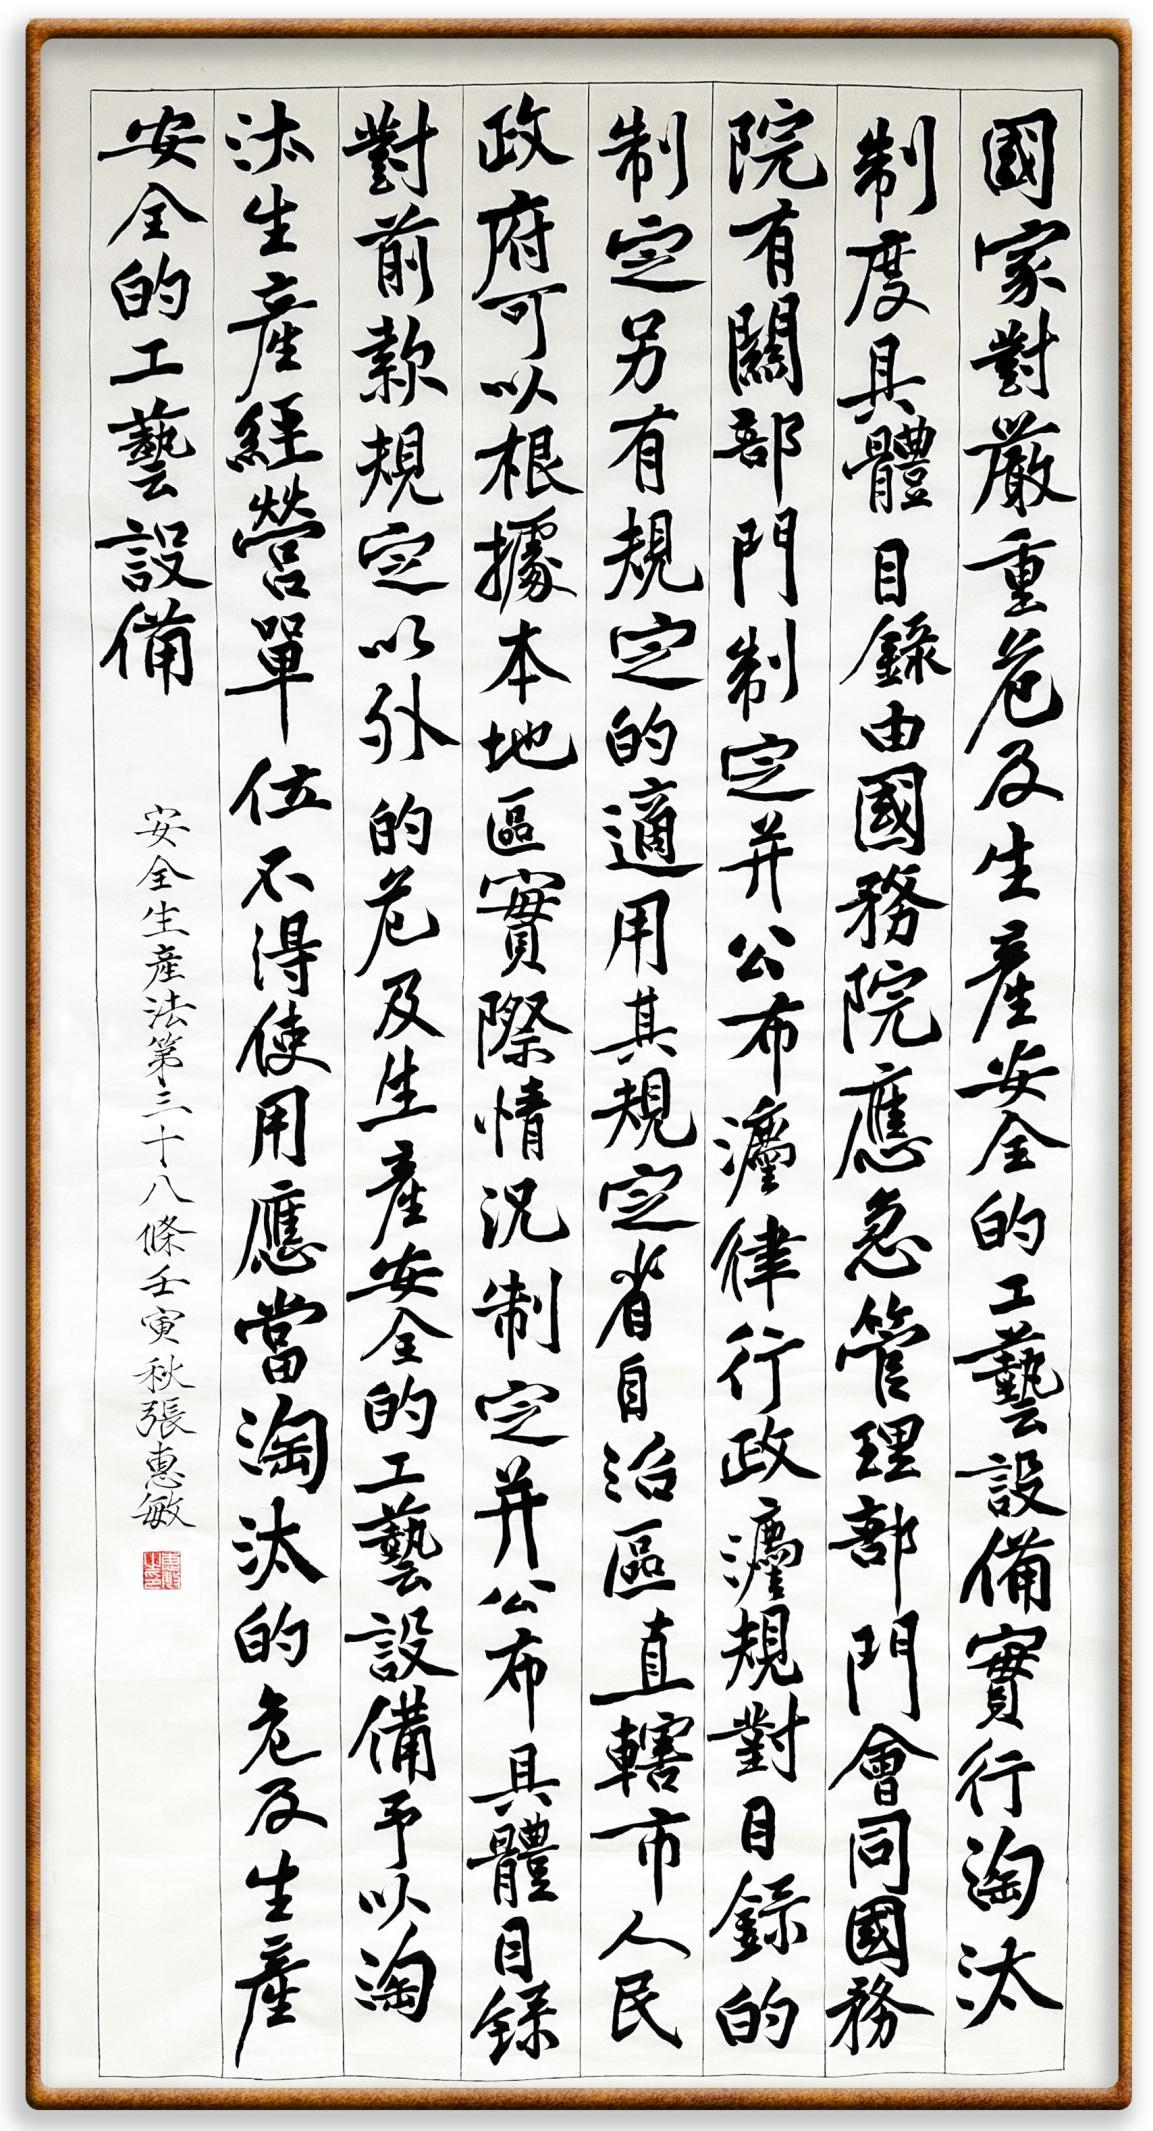 國家對嚴重危及生產安全的工藝設備實行淘汰
制度具體目錄由國務院應急管理部門會同國務
院有關部門制定并公布灋律行政灋規對目錄的
制定另有規定的適用其規定省自治區直轄市人民
政府可以根據本地區實際情況制定并公布具體目錄
對前款規定以外的危及生產安全的工藝設備予以淘
汰生產經營單位不得使用應當淘汰的危及生產
安全的工藝設備
安全生產法第三十八條壬寅秋張惠敏